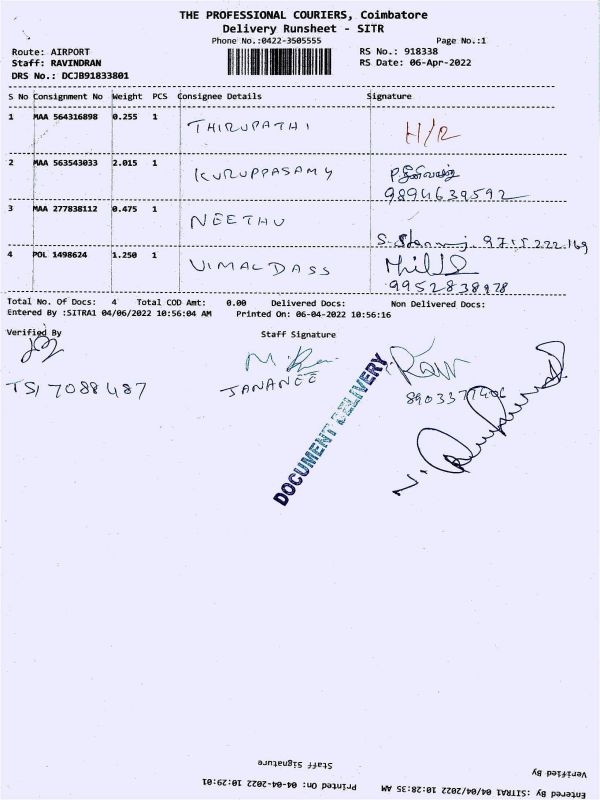 THE PROFESSIONAL COURIERS, Coimbatore
Delivery Runsheet - SITR
Phone No.:0422-3505555 Page No.:1
Route: AIRPORT RS No.: 918338
Staff: RAVINDRAN RS Date: 06-Apr-2022
DRS No.: DCJB91833801
S No Consignment No Weight PCS Consignee Details Signature
1 MAA 564316898 0.255 1 THIRUPATHI H/R
2 MAA 563543033 2.015 1 KURUPPASAMY
9894639592
3 MAA 277838112 0.475 1 NEETHU
9715222169
4 POL 1498624 1.250 1 VIMALDASS
9952838978
Total No. Of Docs: 4 Total COD Amt: 0.00 Delivered Docs: Non Delivered Docs:
Entered By :SITRA1 04/06/2022 10:56:04 AM Printed On: 06-04-2022 10:56:16
Verified By Staff Signature
TSI 7088487 JANANEE
DOCUMENT DELIVERY
Staff Signature
Verified By
Entered By :SITRA1 04/04/2022 10:28:35 AM Printed On: 04-04-2022 10:29:01